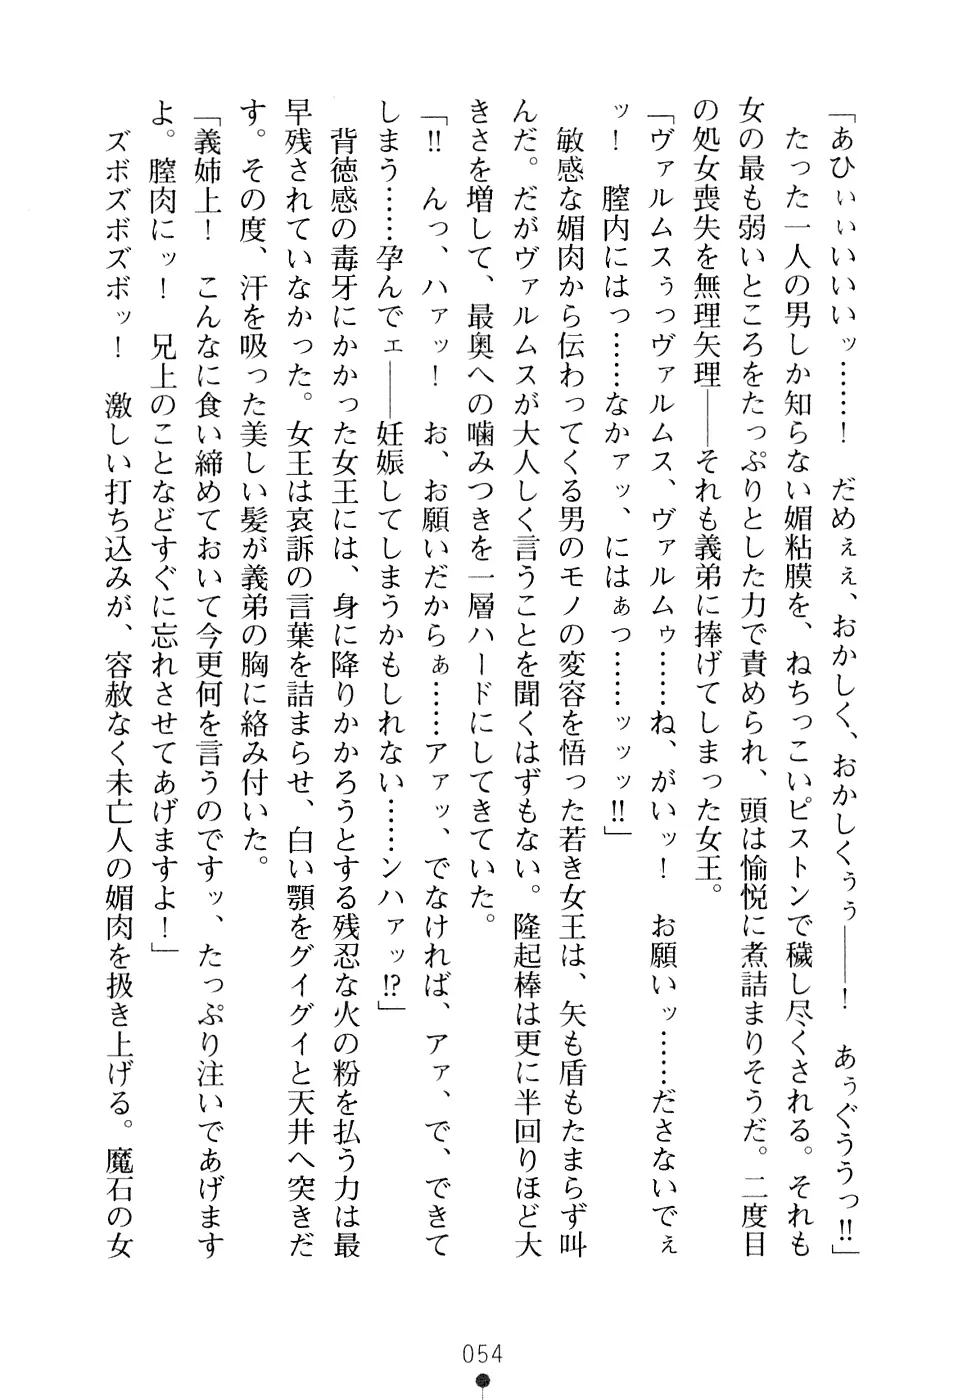 「あひぃぃいいいッ……！　だめぇぇ、おかしく、おかしくぅぅ――！　あぅぐううっ!!」
　たった一人の男しか知らない媚粘膜を、ねちっこいピストンで穢し尽くされる。それも
女の最も弱いところをたっぷりとした力で責められ、頭は愉悦に煮詰まりそうだ。二度目
の処女喪失を無理矢理――それも義弟に捧げてしまった女王。
「ヴァルムスぅっヴァルムス、ヴァルムゥ……ね、がいッ！　お願いッ……ださないでぇ
ッ！　膣内にはっ……なかァッ、にはぁっ……ッッッ!!」
　敏感な媚肉から伝わってくる男のモノの変容を悟った若き女王は、矢も盾もたまらず叫
んだ。だがヴァルムスが大人しく言うことを聞くはずもない。隆起棒は更に半回りほど大
きさを増して、最奥への噛みつきを一層ハードにしてきていた。
「!!　んっ、ハァッ！　お、お願いだからぁ……アァッ、でなければ、アァ、で、できて
しまう……孕んでェ――妊娠してしまうかもしれない……ンハァッ!?」
　背徳感の毒牙にかかった女王には、身に降りかかろうとする残忍な火の粉を払う力は最
早残されていなかった。女王は哀訴の言葉を詰まらせ、白い顎をグイグイと天井へ突きだ
す。その度、汗を吸った美しい髪が義弟の胸に絡み付いた。
「義姉上！　こんなに食い締めておいて今更何を言うのですッ、たっぷり注いであげます
よ。膣肉にッ！　兄上のことなどすぐに忘れさせてあげますよ！」
　ズボズボズボッ！　激しい打ち込みが、容赦なく未亡人の媚肉を扱き上げる。魔石の女
054